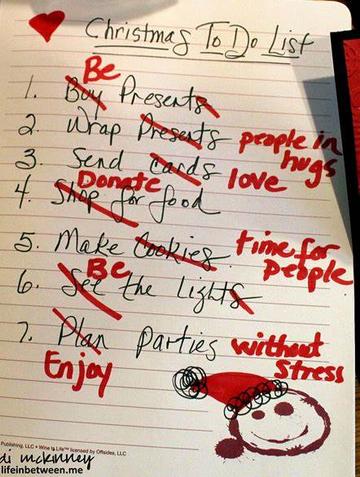 Christmas To Do List
Be
1. Buy Presents
2. Wrap Presents people in hugs
3. Send Cards love
Donate
4. Shop for food
5. Make Cookies time for people
Be
6. See the Lights
7. Plan parties without stress
Enjoy
Publishing, LLC • Wine Is Life™ licensed by Offsides, LLC
di mckinney
lifeinbetween.me